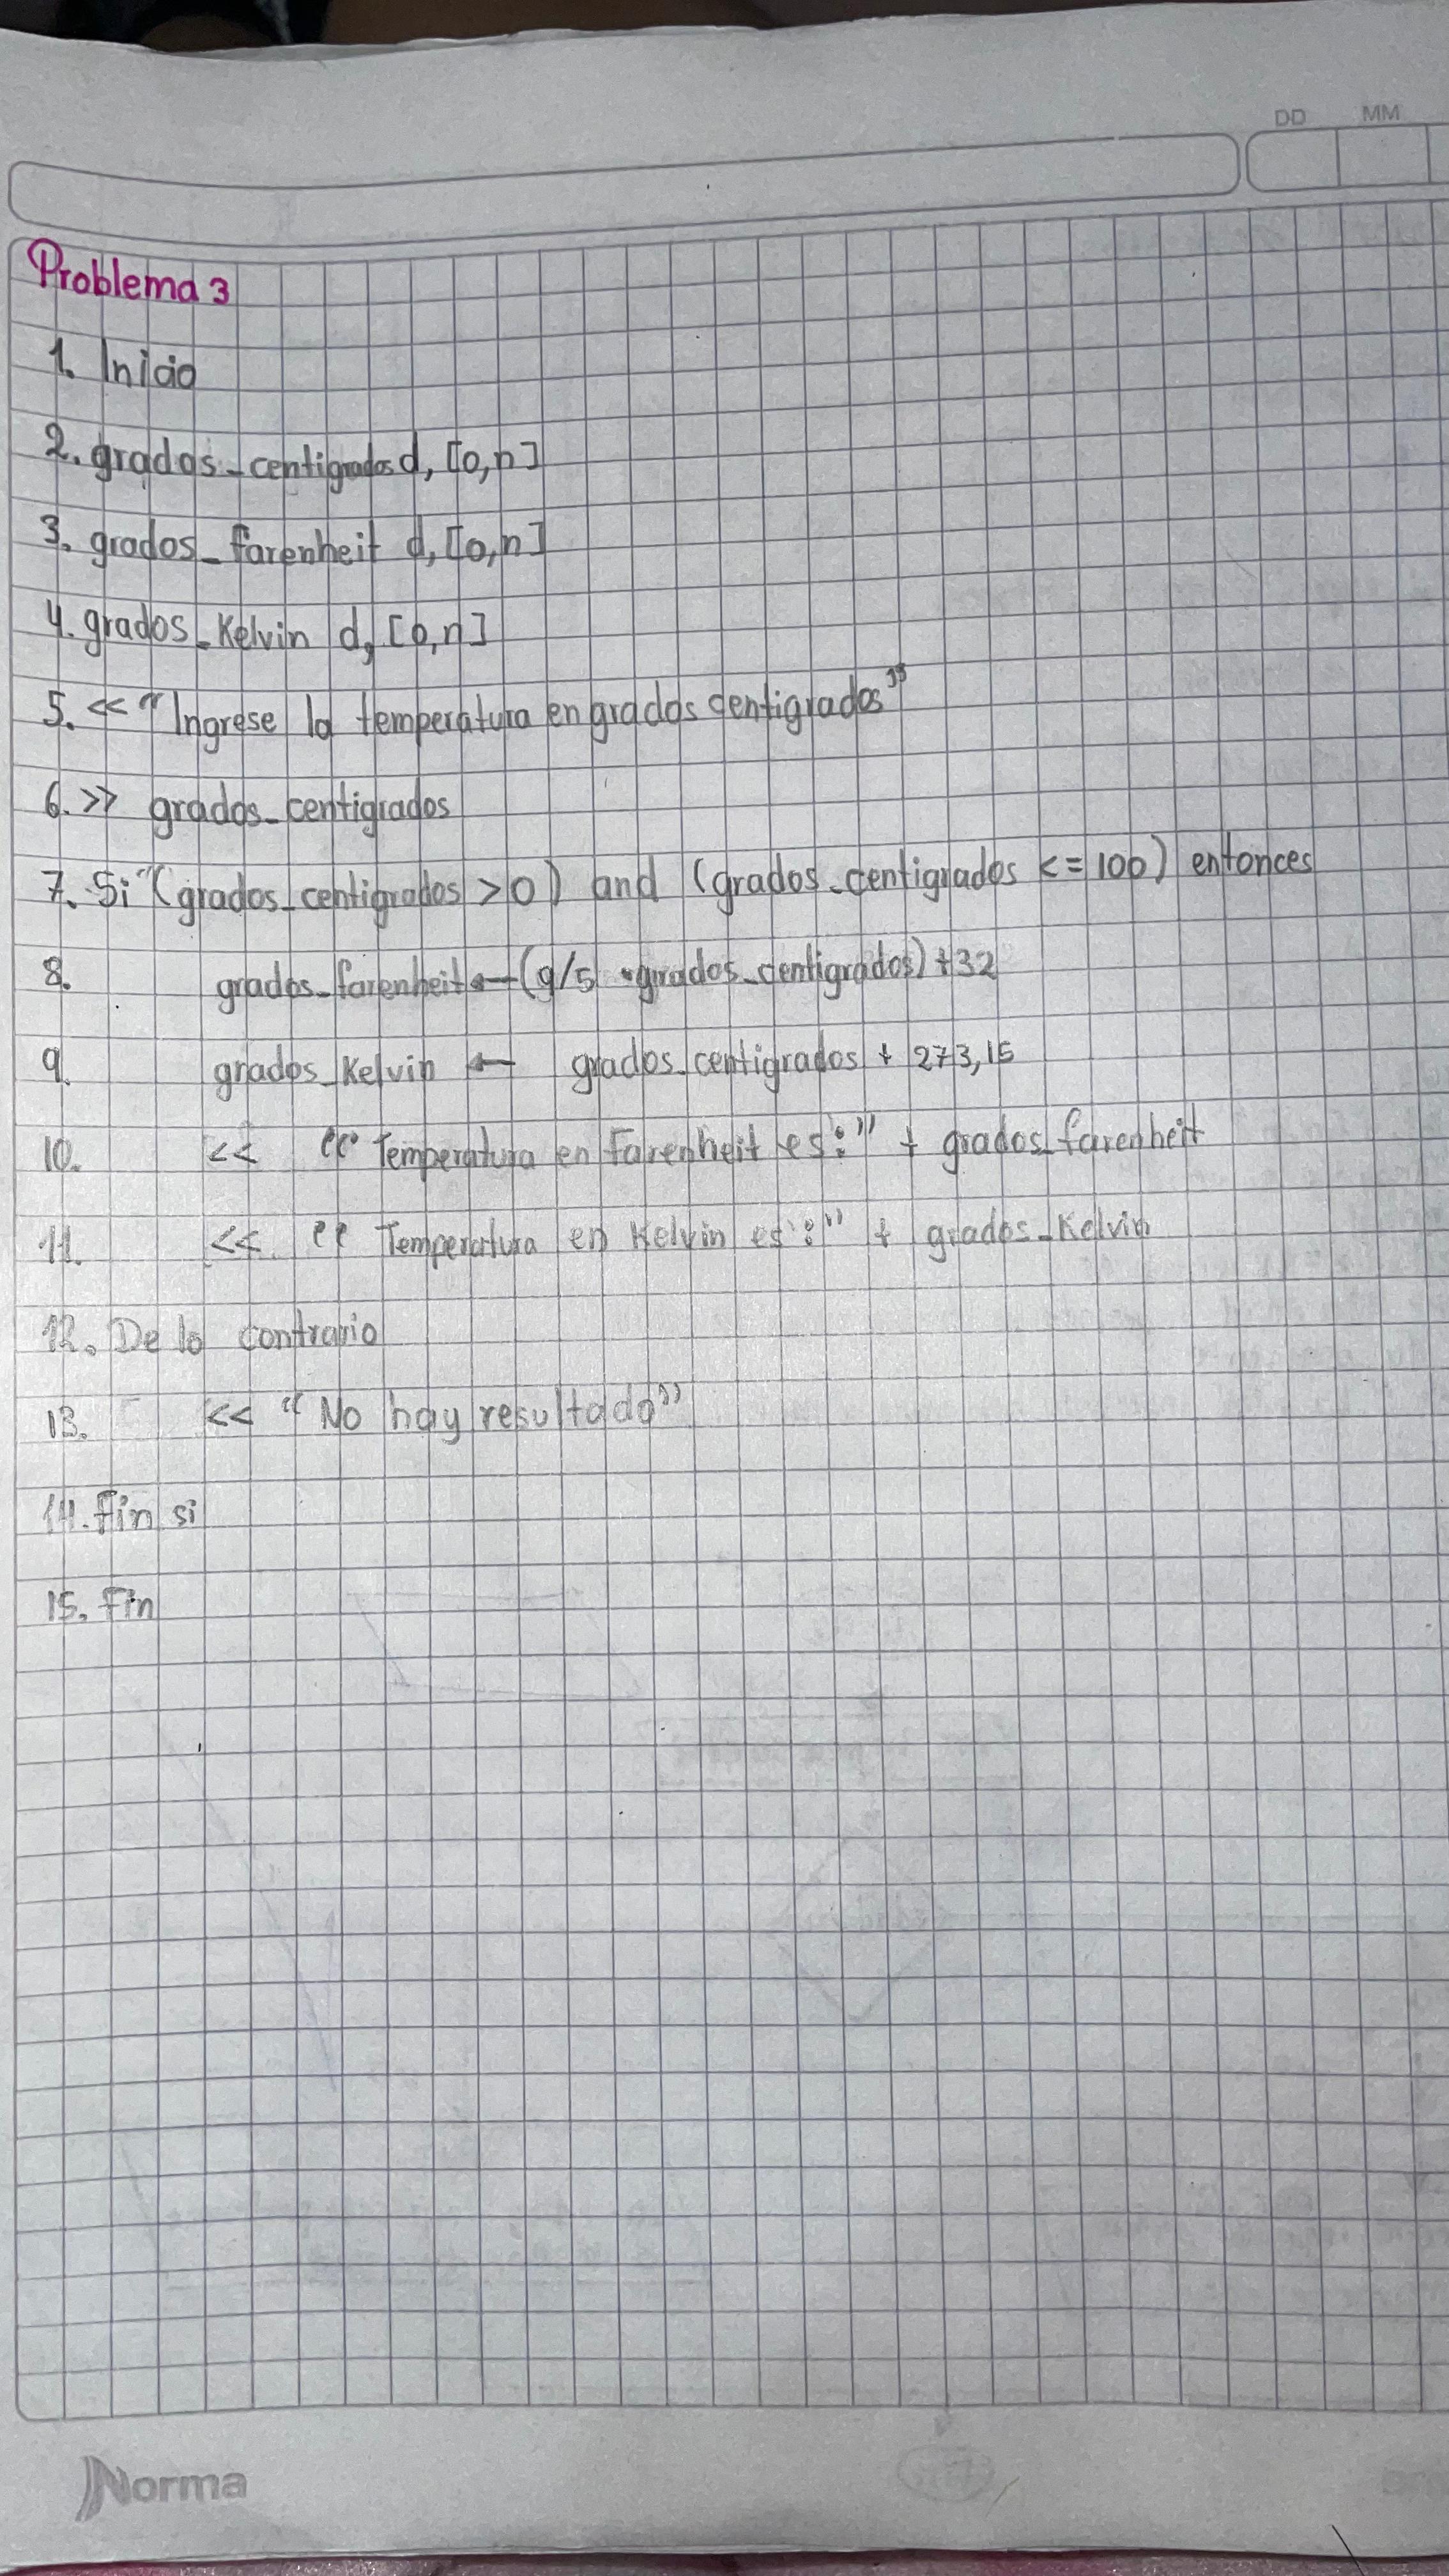 DD MM
Problema 3
1. Inicio
2. grados_centigrados d, [0,n]
3. grados_farenheit d, [0,n]
4. grados_Kelvin d, [0,n]
5. << "Ingrese la temperatura en grados centigrados"
6. >> grados_centigrados
7. Si (grados_centigrados >0) and (grados_centigrados <= 100) entonces
8. grados_farenheit ← (9/5 * grados_centigrados) + 32
9. grados_Kelvin ← grados_centigrados + 273,15
10. << "Temperatura en Farenheit es:" + grados_farenheit
11. << "Temperatura en Kelvin es:" + grados_Kelvin
12. De lo contrario
13. << "No hay resultado"
14. Fin si
15. Fin
Norma